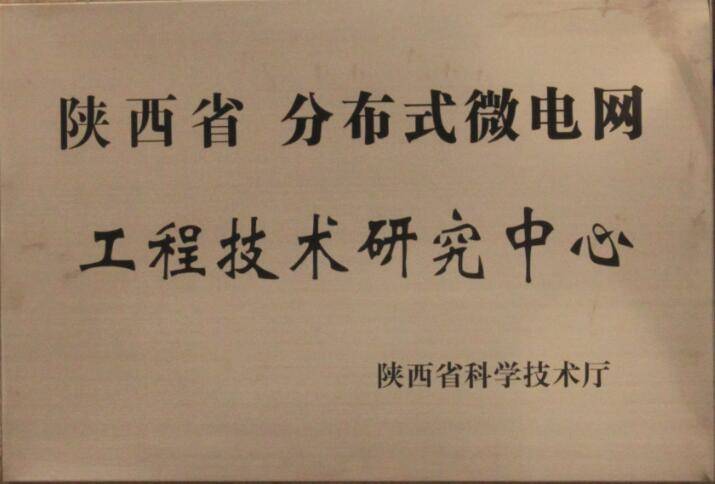 陕西省 分布式微电网
工程技术研究中心
陕西省科学技术厅